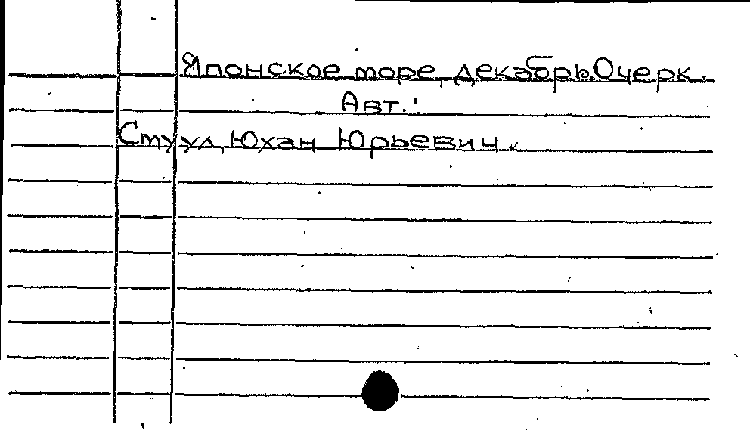 Японское море, декабрь. Очерк.
Авт.:
Смуул, Юхан Юрьевич.